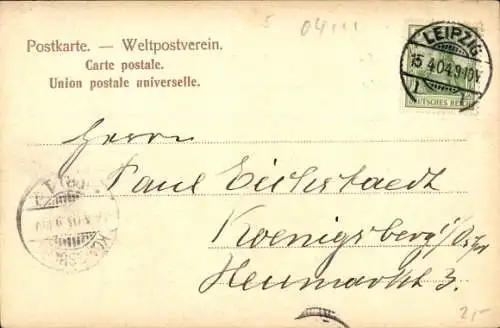 5 04111
Postkarte. — Weltpostverein.
Carte postale.
Union postale universelle.
LEIPZIG
15 4.04.9-10V.
1
DEUTSCHES REICH
Herrn
Paul Eichstaedt
Koenigsberg i/
Heumarkt 3.
2,-